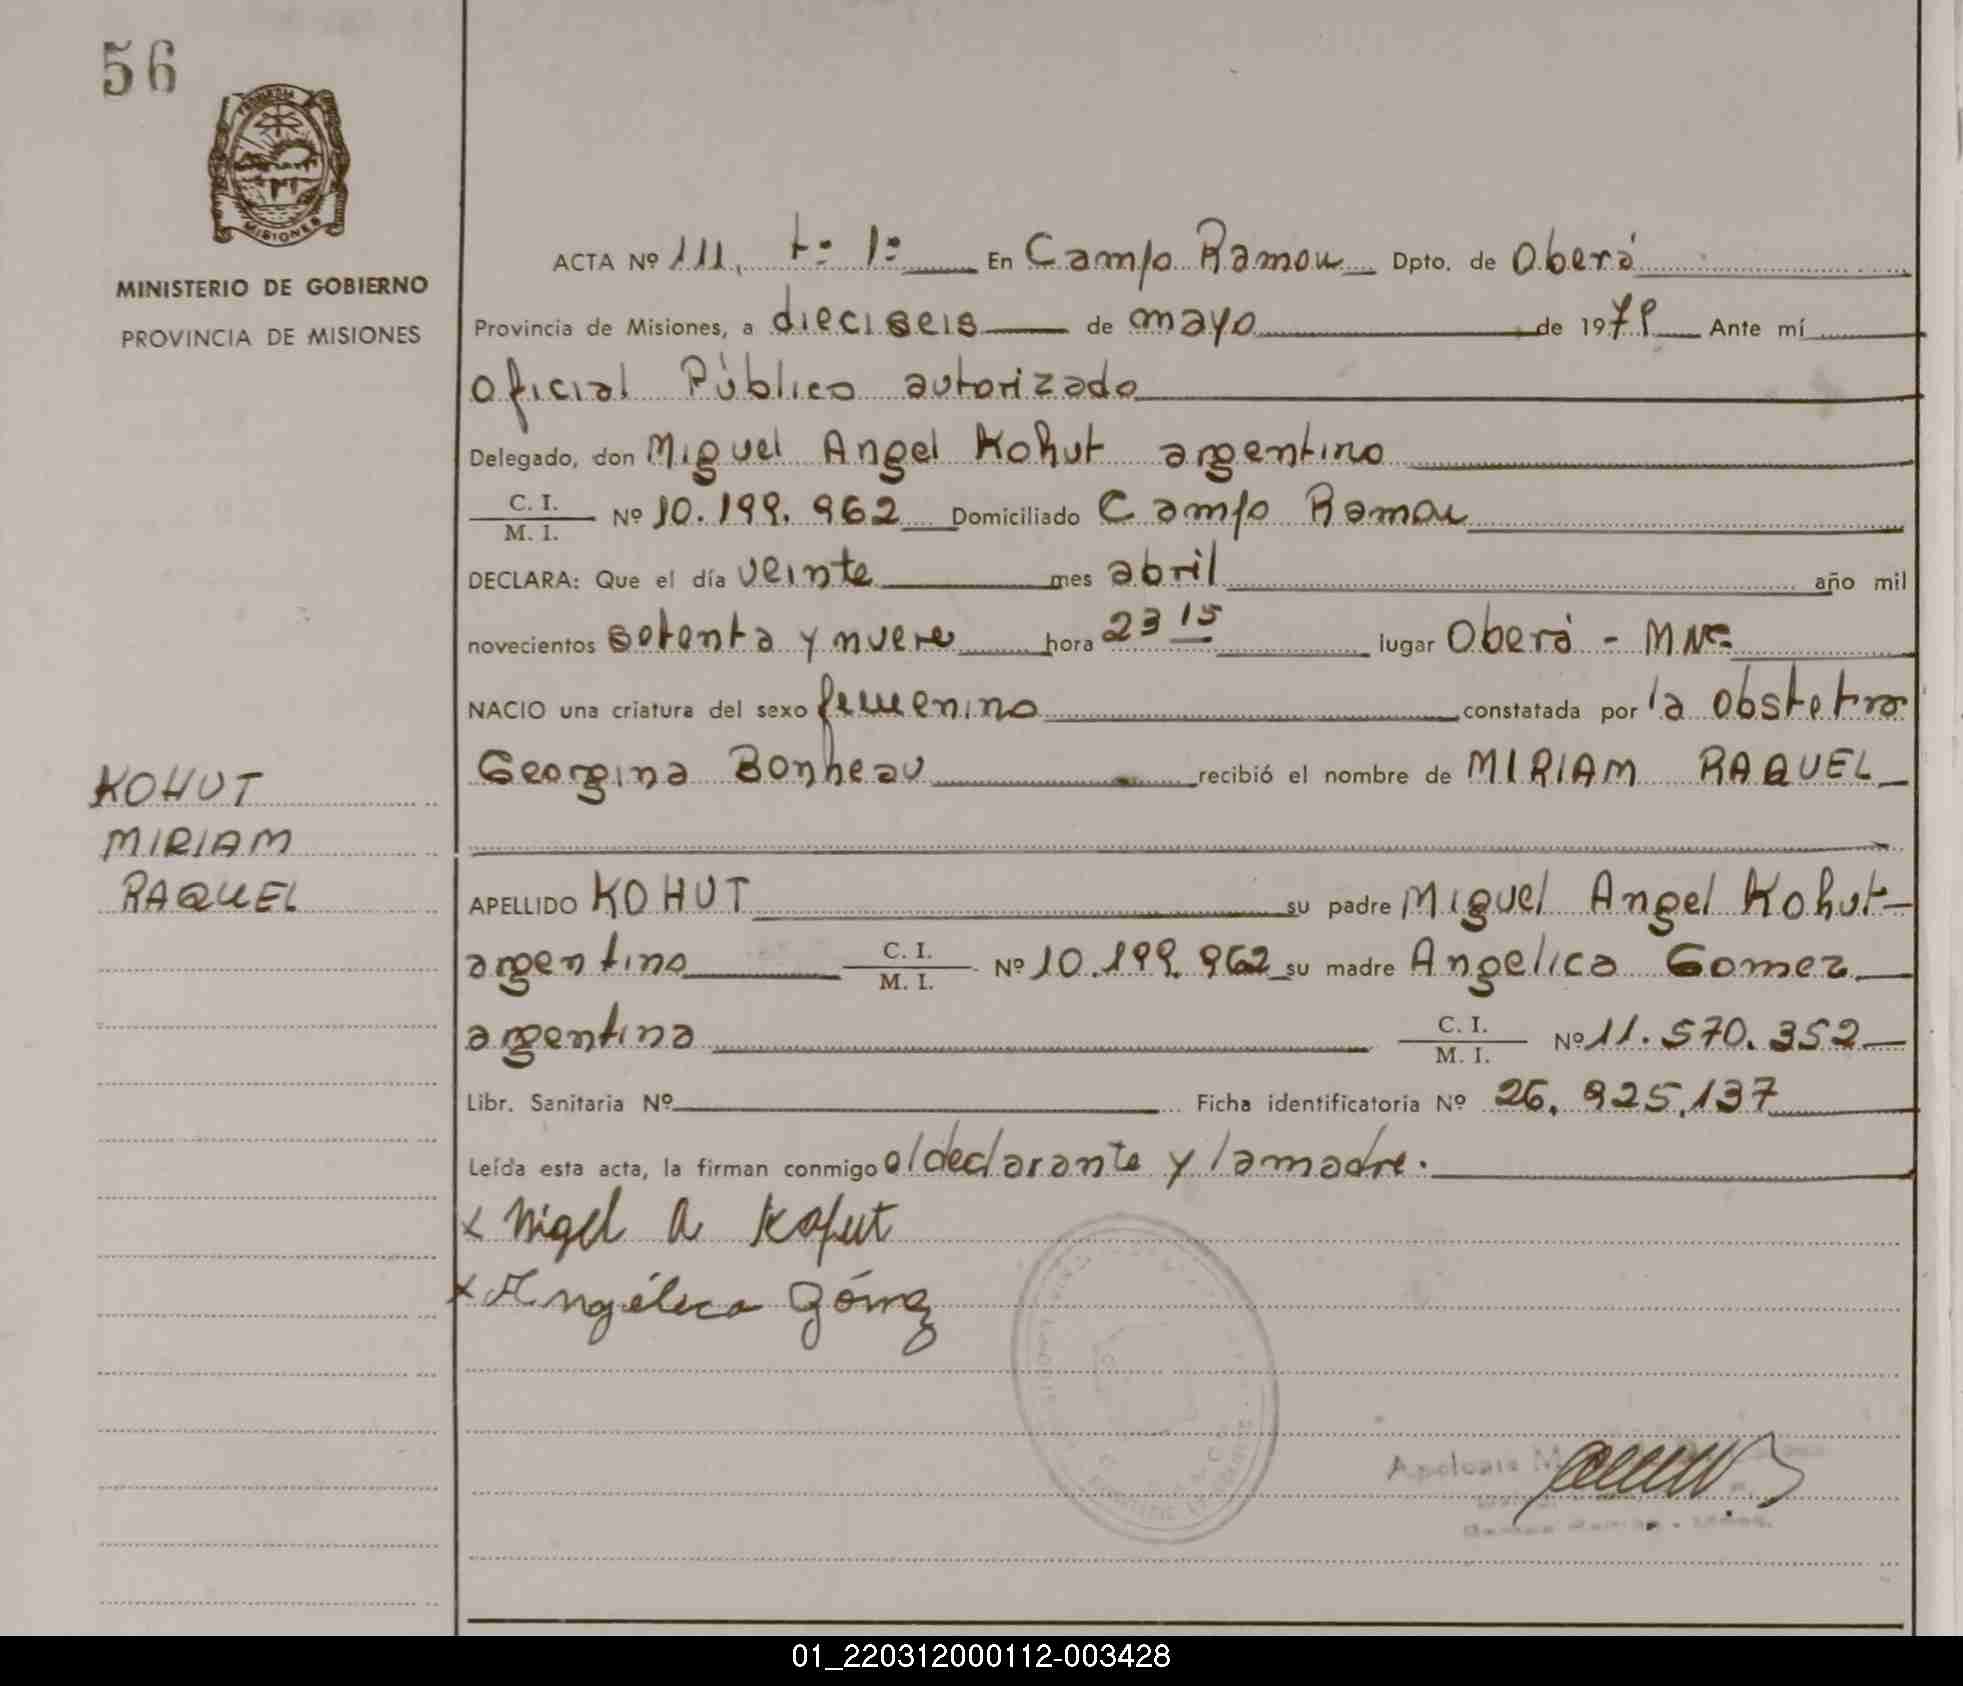 56
MINISTERIO DE GOBIERNO
PROVINCIA DE MISIONES
ACTA Nº 111. tº 1º En Campo Ramon Dpto. de Oberá
Provincia de Misiones, a dieciseis de mayo de 1979 Ante mí
Oficial Público autorizado
Delegado, don Miguel Angel Kohut argentino
C. I.
M. I. Nº 10.199.962 Domiciliado Campo Ramon
DECLARA: Que el día veinte mes abril año mil
novecientos setenta y nueve hora 23 15 lugar Oberá - Mnes
NACIO una criatura del sexo femenino constatada por la obstetra
Georgina Bonheau recibió el nombre de MIRIAM RAQUEL
KOHUT
MIRIAM
RAQUEL
APELLIDO KOHUT su padre Miguel Angel Kohut
argentino C. I. M. I. Nº 10.199.962 su madre Angelica Gomez
argentina C. I. M. I. Nº 11.570.352
Libr. Sanitaria Nº Ficha identificatoria Nº 26.925.137
Leída esta acta, la firman conmigo el declarante y la madre.
x Migel A Kohut
x Angélica Gómez
01_220312000112-003428